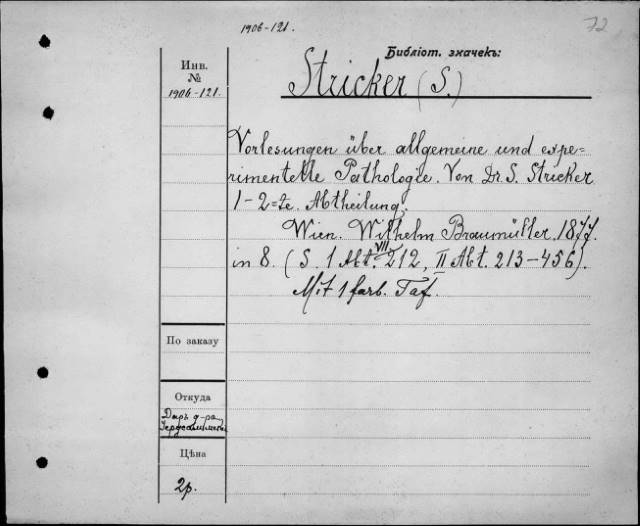 1906-121.
72
Библіот. значекъ:
Инв.
№
1906-121.
Stricker (S.)
Vorlesungen über allgemeine und expe=
rimentelle Pathologie. Von Dr. S. Stricker
1-2=te. Abtheilung.
Wien. Wilhelm Braumüller. 1877.
in 8. (S. 1 Abt. VII 212, II Abt. 213-456).
Mit 1 farb. Taf.
По заказу
Откуда
Даръ д-ра
Цѣна
2р.